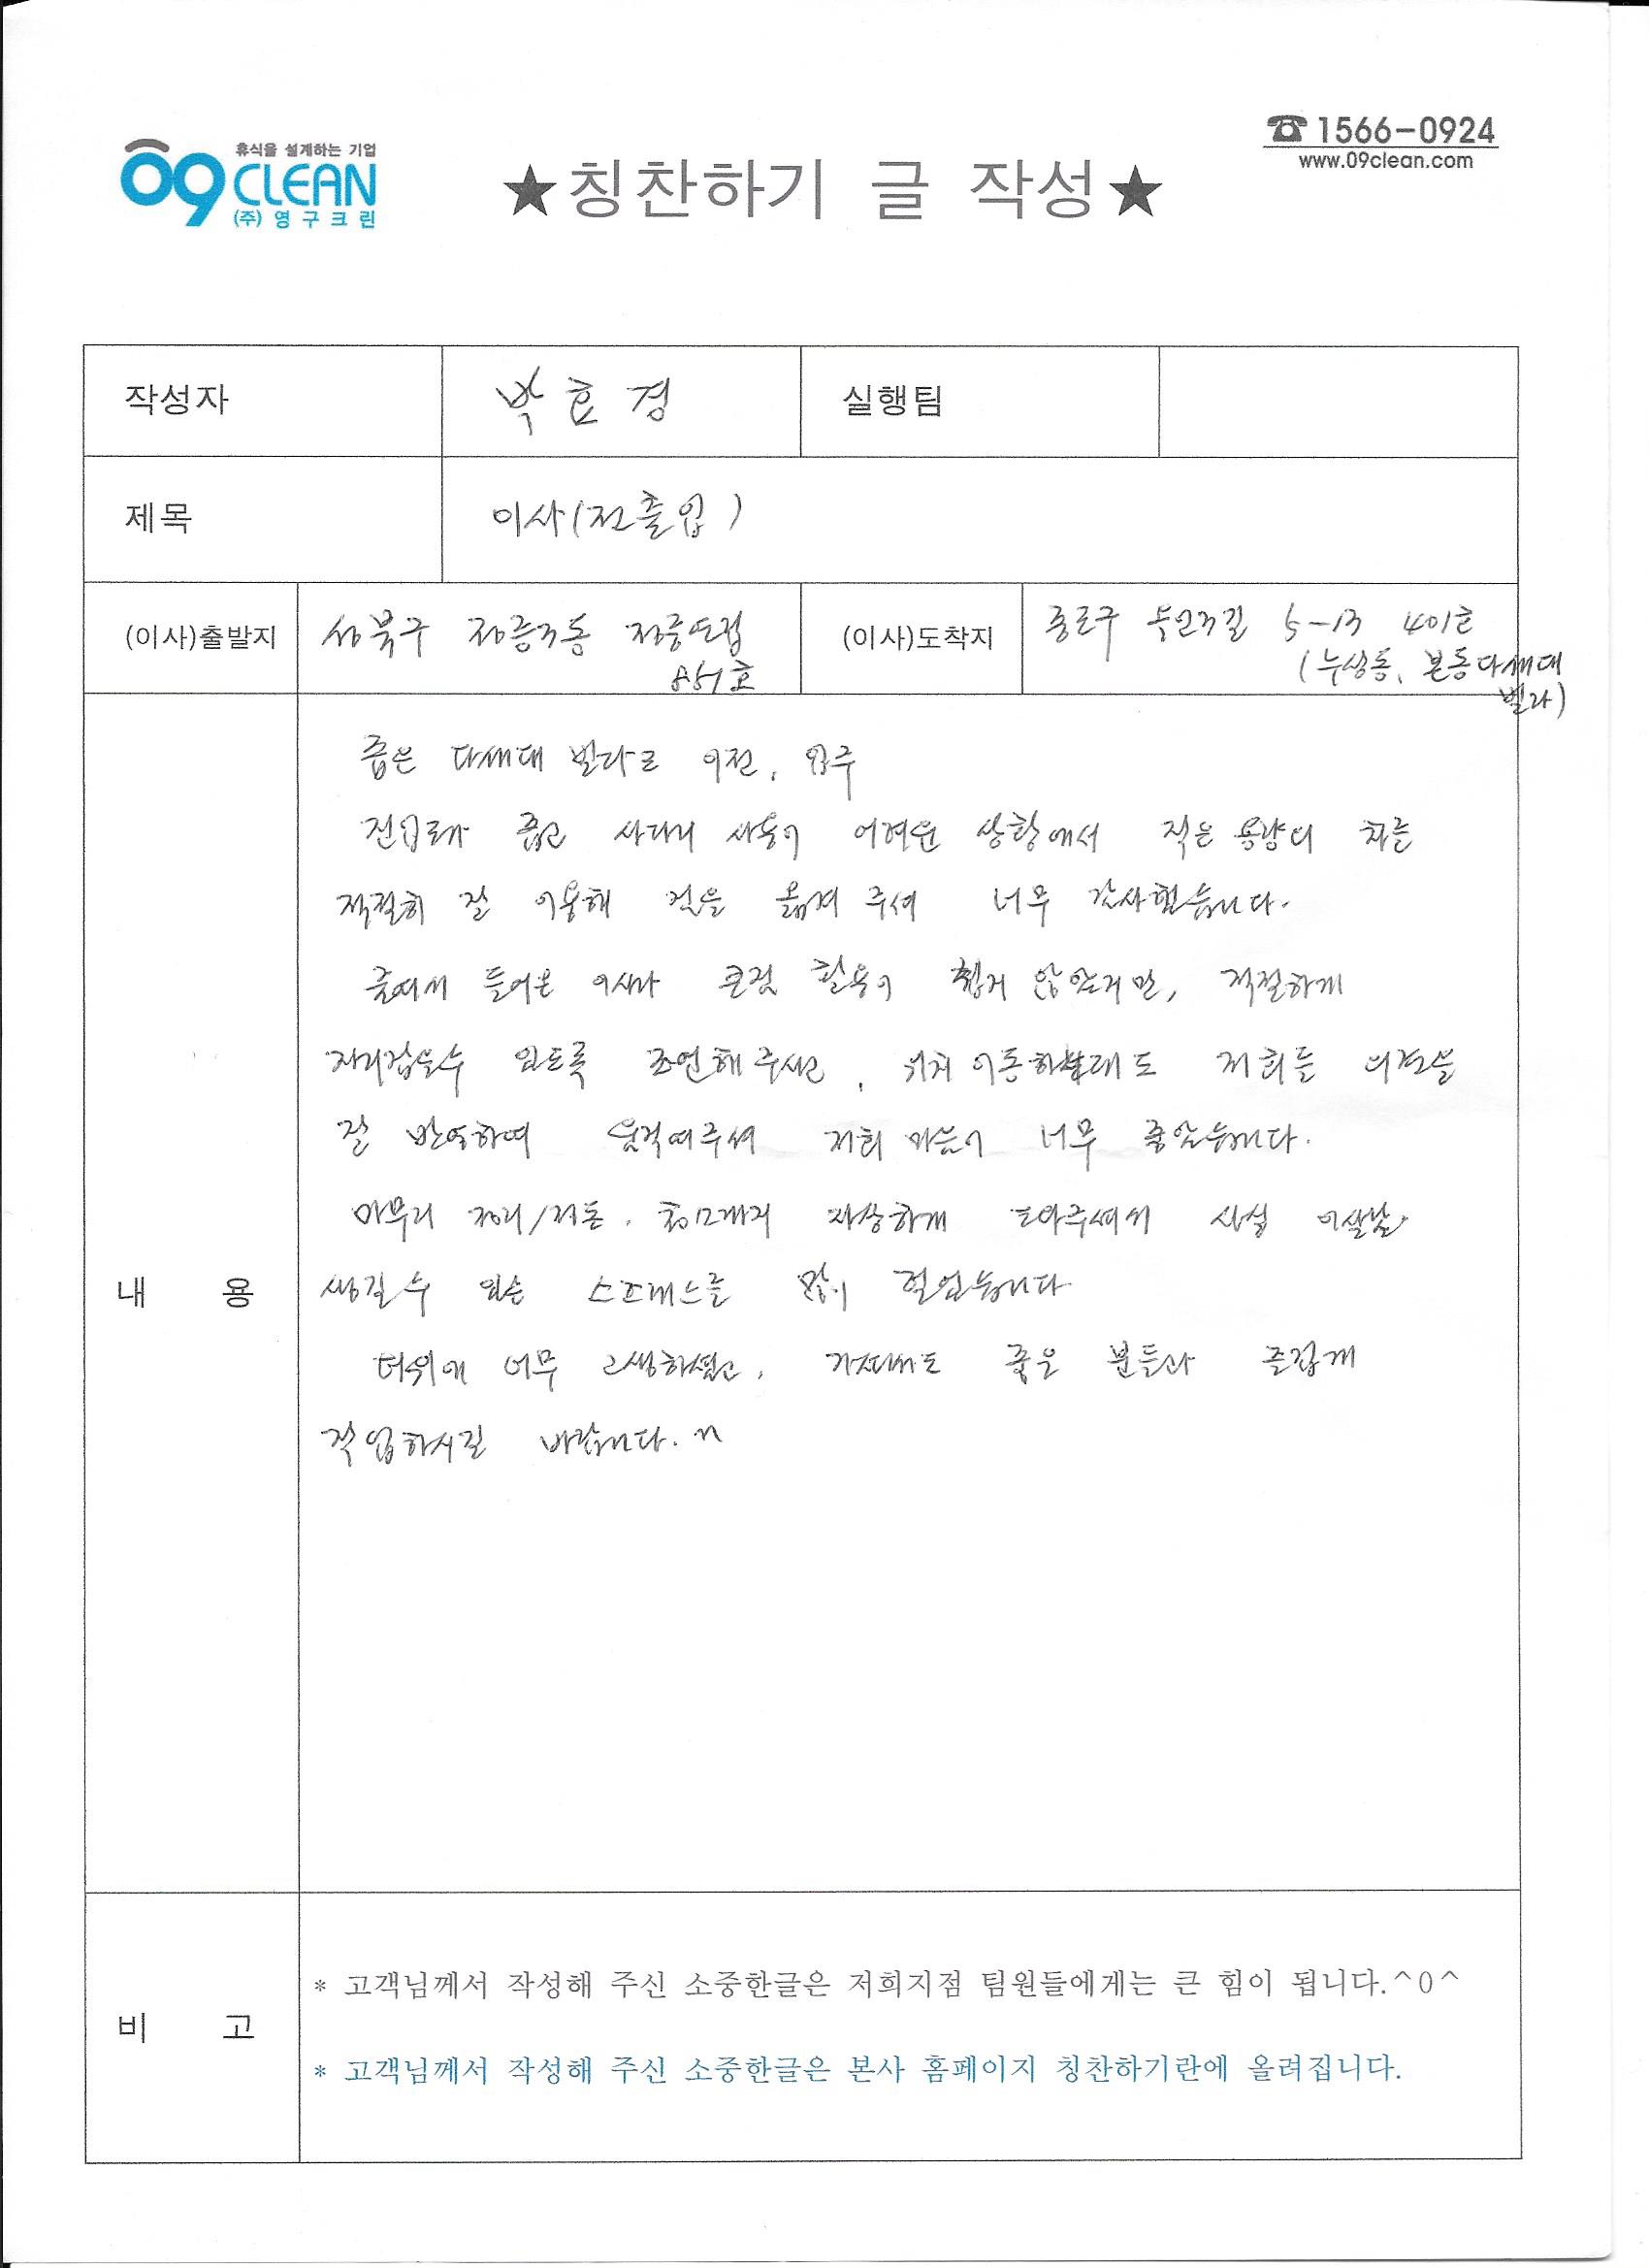 휴식을 설계하는 기업
09 CLEAN
(주)영구크린
★칭찬하기 글 작성★
☎1566-0924
www.09clean.com
작성자 박효경 실행팀
제목 이사(전출입)
(이사)출발지 성북구
(이사)도착지 종로구 5-13 401호
(누상동, 본동다세대
빌라)
좁은 다세대 빌라로 이전, 입주
진입로가 좁고 사다리 사용이 어려운 상황에서 적은 용량의 차를
적절히 잘 이용해 짐을 옮겨 주셔 너무 감사했습니다.
줄여서 들어온 이사라 큰짐 활용이 쉽지 않았지만, 적절하게
자리잡을수 있도록 조언해주시고, 위치 이동하는데도 저희들 의견을
잘 반영하여 움직여주셔 저희 마음이 너무 좋았습니다.
마무리 정리/정돈, 청소까지 자상하게 도와주셔서 사실 이삿날
생길수 있는 스트레스를 많이 덜었습니다
더위에 너무 고생하셨고, 좋은 분들과 즐겁게
작업하시길 바랍니다. ^^
내 용
비 고
* 고객님께서 작성해 주신 소중한글은 저희지점 팀원들에게는 큰 힘이 됩니다.^0^
* 고객님께서 작성해 주신 소중한글은 본사 홈페이지 칭찬하기란에 올려집니다.